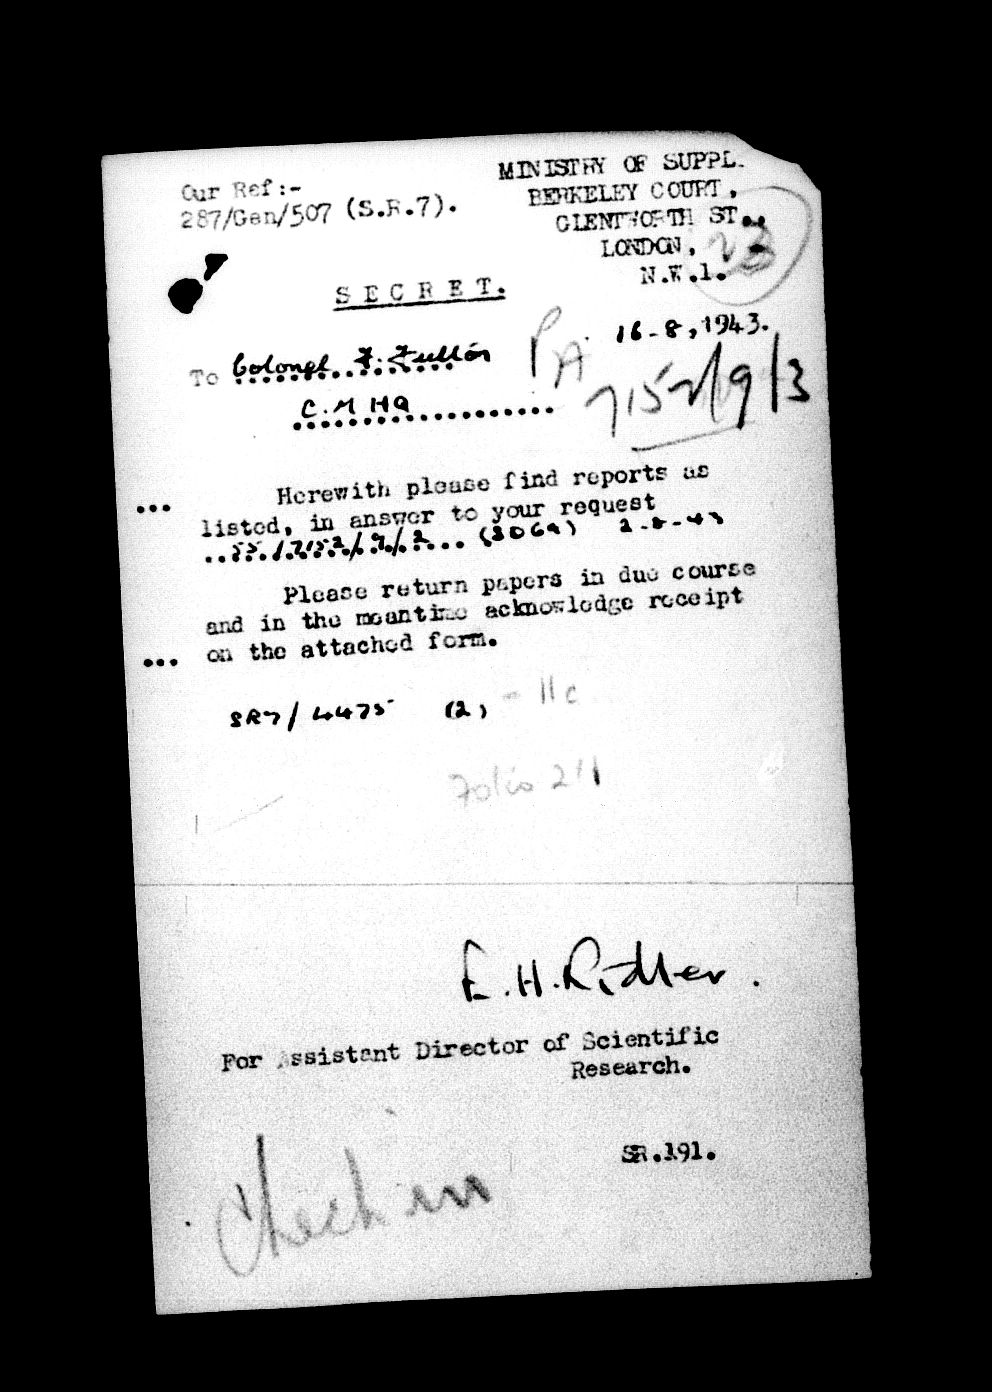 Our Ref:-
287/Gen/507 (S.R.7).
MINISTRY OF SUPPL.
BERKELEY COURT,
GLENTWORTH ST.,
LONDON,
N.W.1.
23
SECRET.
16-8-1943.
PA
7152/9/3
To Colonel F. Fullon
C.M HQ
... Herewith please find reports as
listed, in answer to your request
55/7152/9/2 (SD6a) 2-8-43
Please return papers in due course
and in the meantime acknowledge receipt
... on the attached form.
SR7/4475 (2) - 11c
Folio 211
E.H. Ridler.
For Assistant Director of Scientific
Research.
SR.191.
Check in